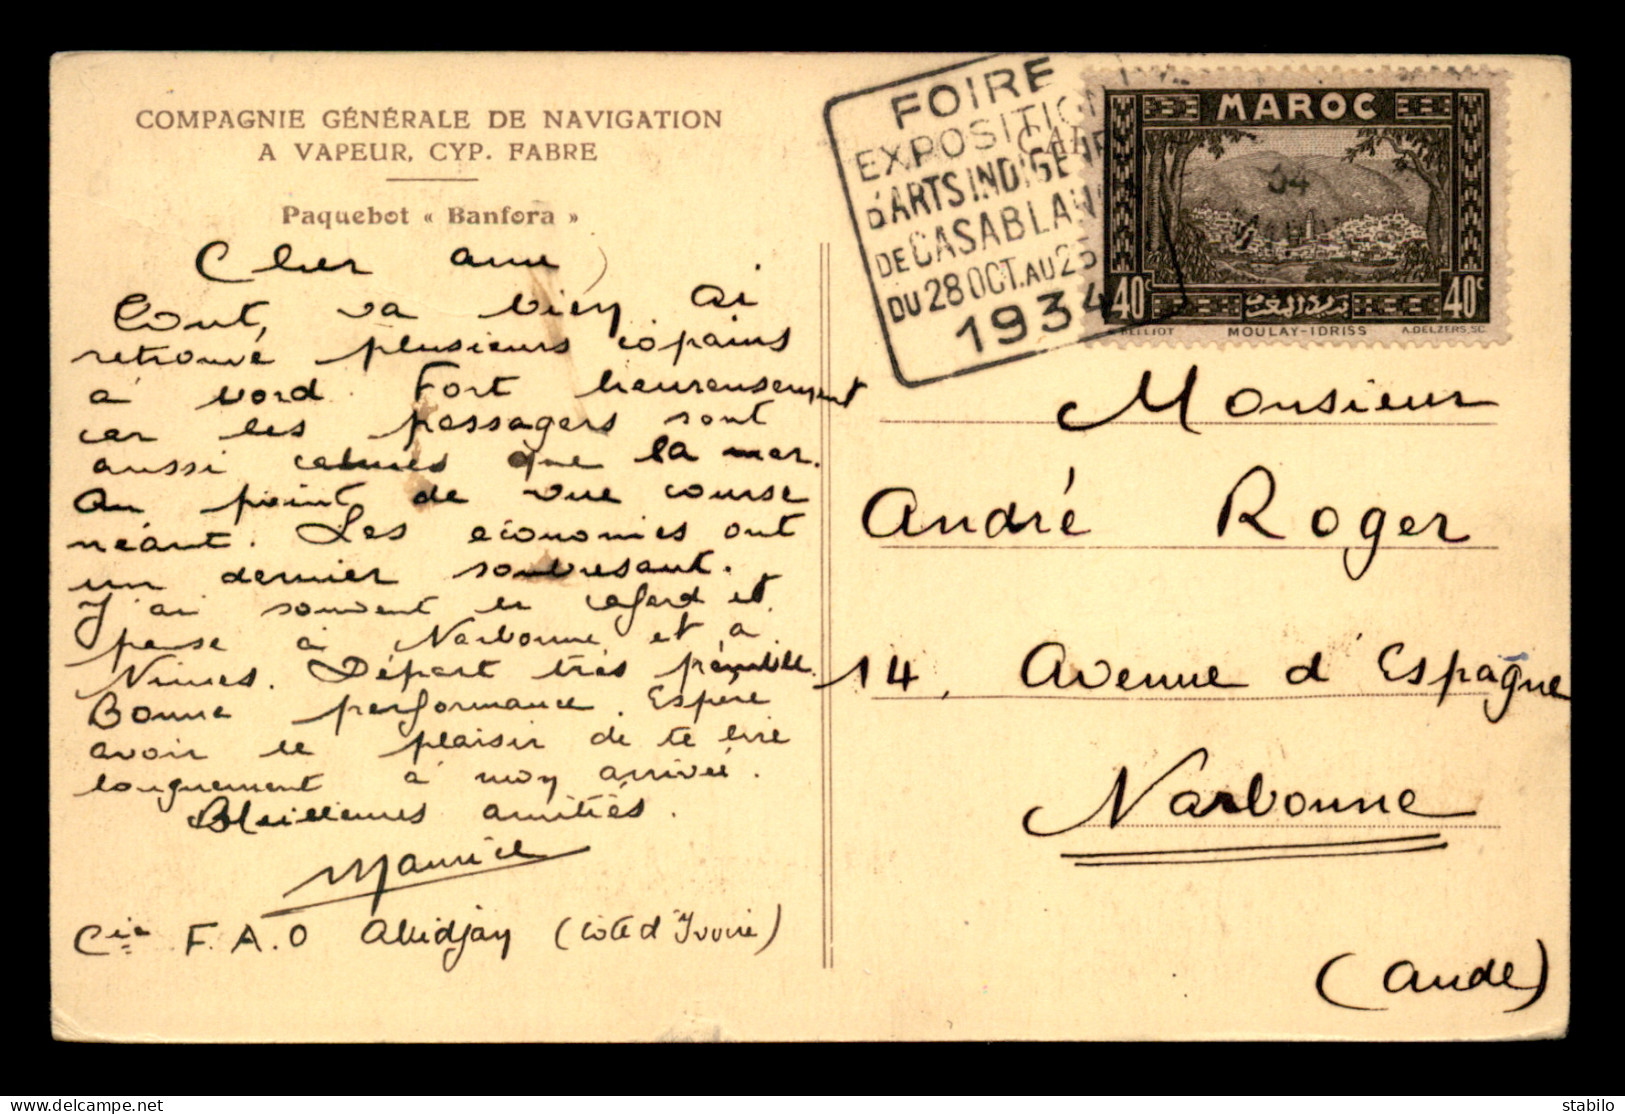 COMPAGNIE GÉNÉRALE DE NAVIGATION
A VAPEUR, CYP. FABRE
Paquebot « Banfora »
Cher ami,
Tout va bien. Ai
retrouvé plusieurs copains
à bord. Fort heureusement
car les passagers sont
aussi calmes que la mer.
Au point de vue course
néant. Les économies ont
un dernier soubresaut.
J'ai souvent le cafard et
pense à Narbonne et à
Nimes. Départ très pénible.
Bonne performance. Espère
avoir le plaisir de te lire
longuement à mon arrivée.
Meilleures amitiés.
Maurice
Cie F.A.O Abidjan (Côte d'Ivoire)
FOIRE
EXPOSITION
D'ARTS INDIGENE
DE CASABLAN
DU 28 OCT. AU 25
1934
MAROC
34
40c 40c
المغرب
MOULAY-IDRISS
A.DELZERS, SC.
Monsieur
André Roger
14, Avenue d'Espagne
Narbonne
(Aude)
stabilo